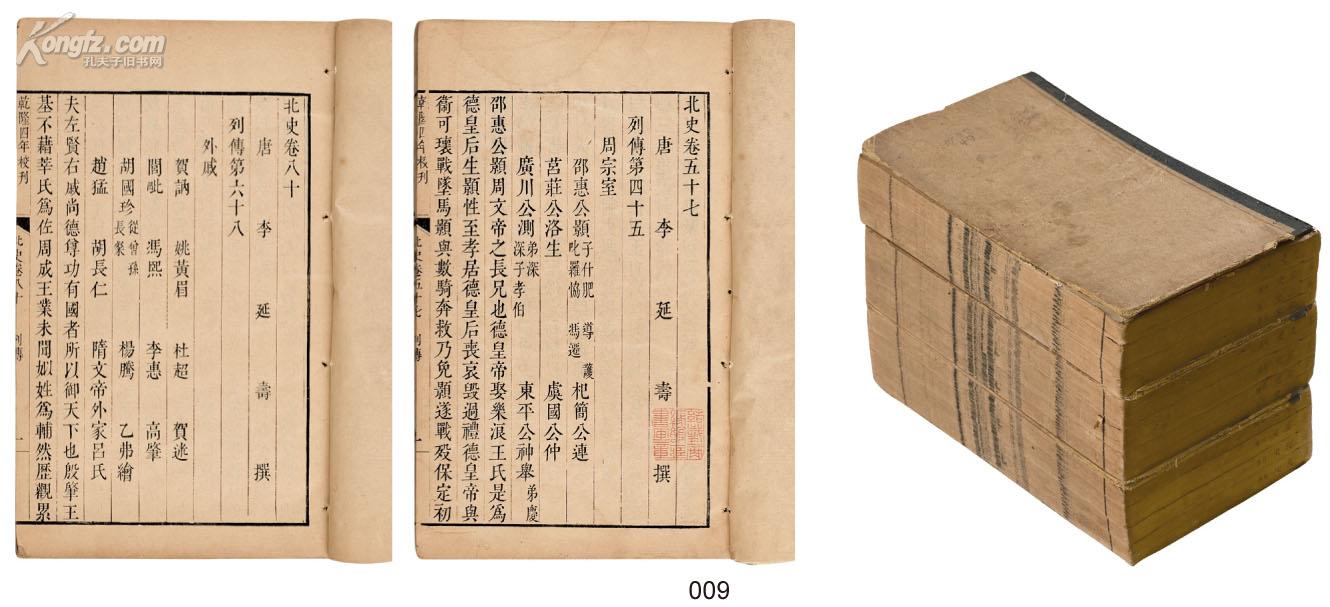 Kongfz.com
孔夫子旧书网
北史卷八十
唐 李 延 壽 撰
列傳第六十八
外戚
賀訥 姚黃眉 杜超 賀迷
閭毗 馮熙 李惠 高肇
胡國珍 從曾孫 長粲 楊騰 乙弗繪
趙猛 胡長仁 隋文帝外家呂氏
夫左賢右戚尚德尊功有國者所以御天下也殷肇王
基不藉莘氏爲佐周成王業未聞姒姓爲輔然歷觀累
乾隆四年校刊
北史卷八十 列傳 一
北史卷五十七
唐 李 延 壽 撰
列傳第四十五
周宗室
邵惠公顥 子什肥 導 護 叱羅協 馮遷 杞簡公連
莒莊公洛生 虞國公仲
廣川公測 弟深 深子孝伯 東平公神舉 弟慶
邵惠公顥周文帝之長兄也德皇帝娶樂浪王氏是爲
德皇后生顥性至孝居德皇后喪哀毀過禮德皇帝與
衞可瓌戰墜馬顥與數騎奔救乃免顥遂戰歿保定初
乾隆四年校刊
北史卷五十七 列傳 一
009